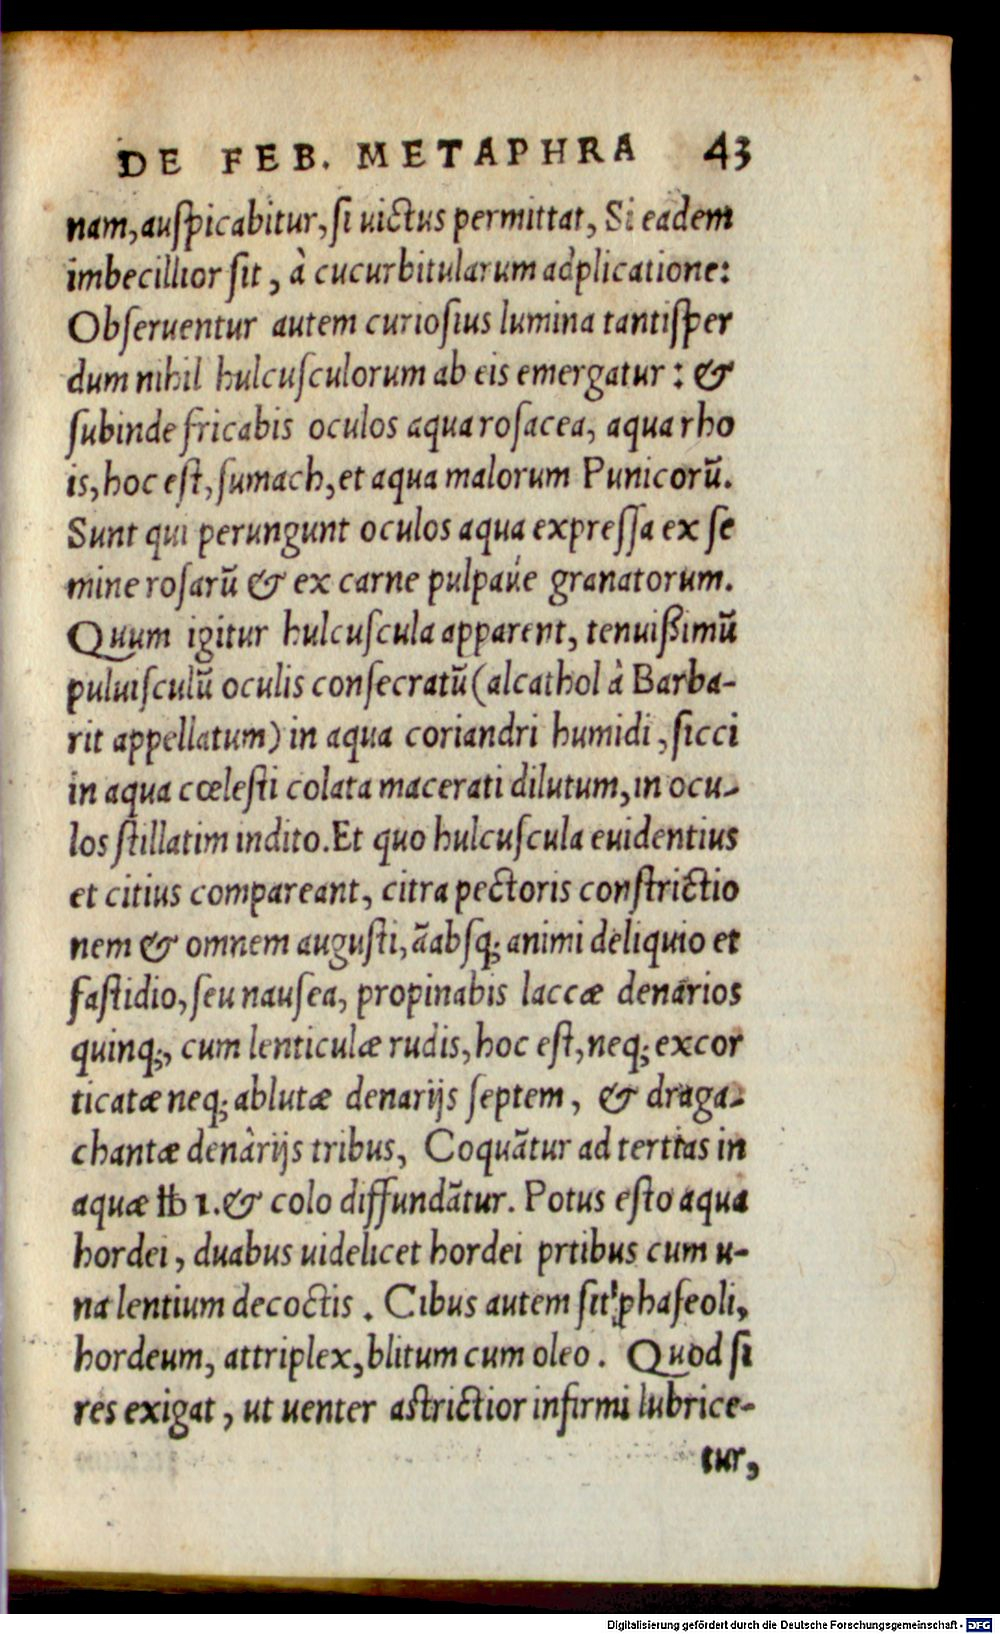 DE FEB. METAPHRA 43
nam, auſpicabitur, ſi uictus permittat, Si eadem
imbecillior ſit, à cucurbitularum adplicatione:
Obſeruentur autem curioſius lumina tantiſper
dum nihil hulcuſculorum ab eis emergatur: &
ſubinde fricabis oculos aqua roſacea, aqua rho
is, hoc eſt, ſumach, et aqua malorum Punicorũ.
Sunt qui perungunt oculos aqua expreſſa ex ſe
mine roſarũ & ex carne pulpaúe granatorum.
Quum igitur hulcuſcula apparent, tenuißimũ
puluiſculũ oculis conſecratũ (alcathol à Barba-
rit appellatum) in aqua coriandri humidi, ſicci
in aqua cœleſti colata macerati dilutum, in ocu-
los ſtillatim indito. Et quo hulcuſcula euidentius
et citius compareant, citra pectoris conſtrictio
nem & omnem auguſti, ãabſq; animi deliquio et
faſtidio, ſeu nauſea, propinabis laccæ denarios
quinq;, cum lenticulæ rudis, hoc eſt, neq; excor
ticatæ neq; ablutæ denarijs ſeptem, & draga-
chantæ denàrijs tribus, Coquãtur ad tertias in
aquæ ℔ 1. & colo diffundãtur. Potus eſto aqua
hordei, duabus uidelicet hordei prtibus cum u-
na lentium decoctis. Cibus autem ſit phaſeoli,
hordeum, attriplex, blitum cum oleo. Quod ſi
res exigat, ut uenter aſtrictior infirmi lubrice-
tur,
Digitalisierung gefördert durch die Deutsche Forschungsgemeinschaft - DFG